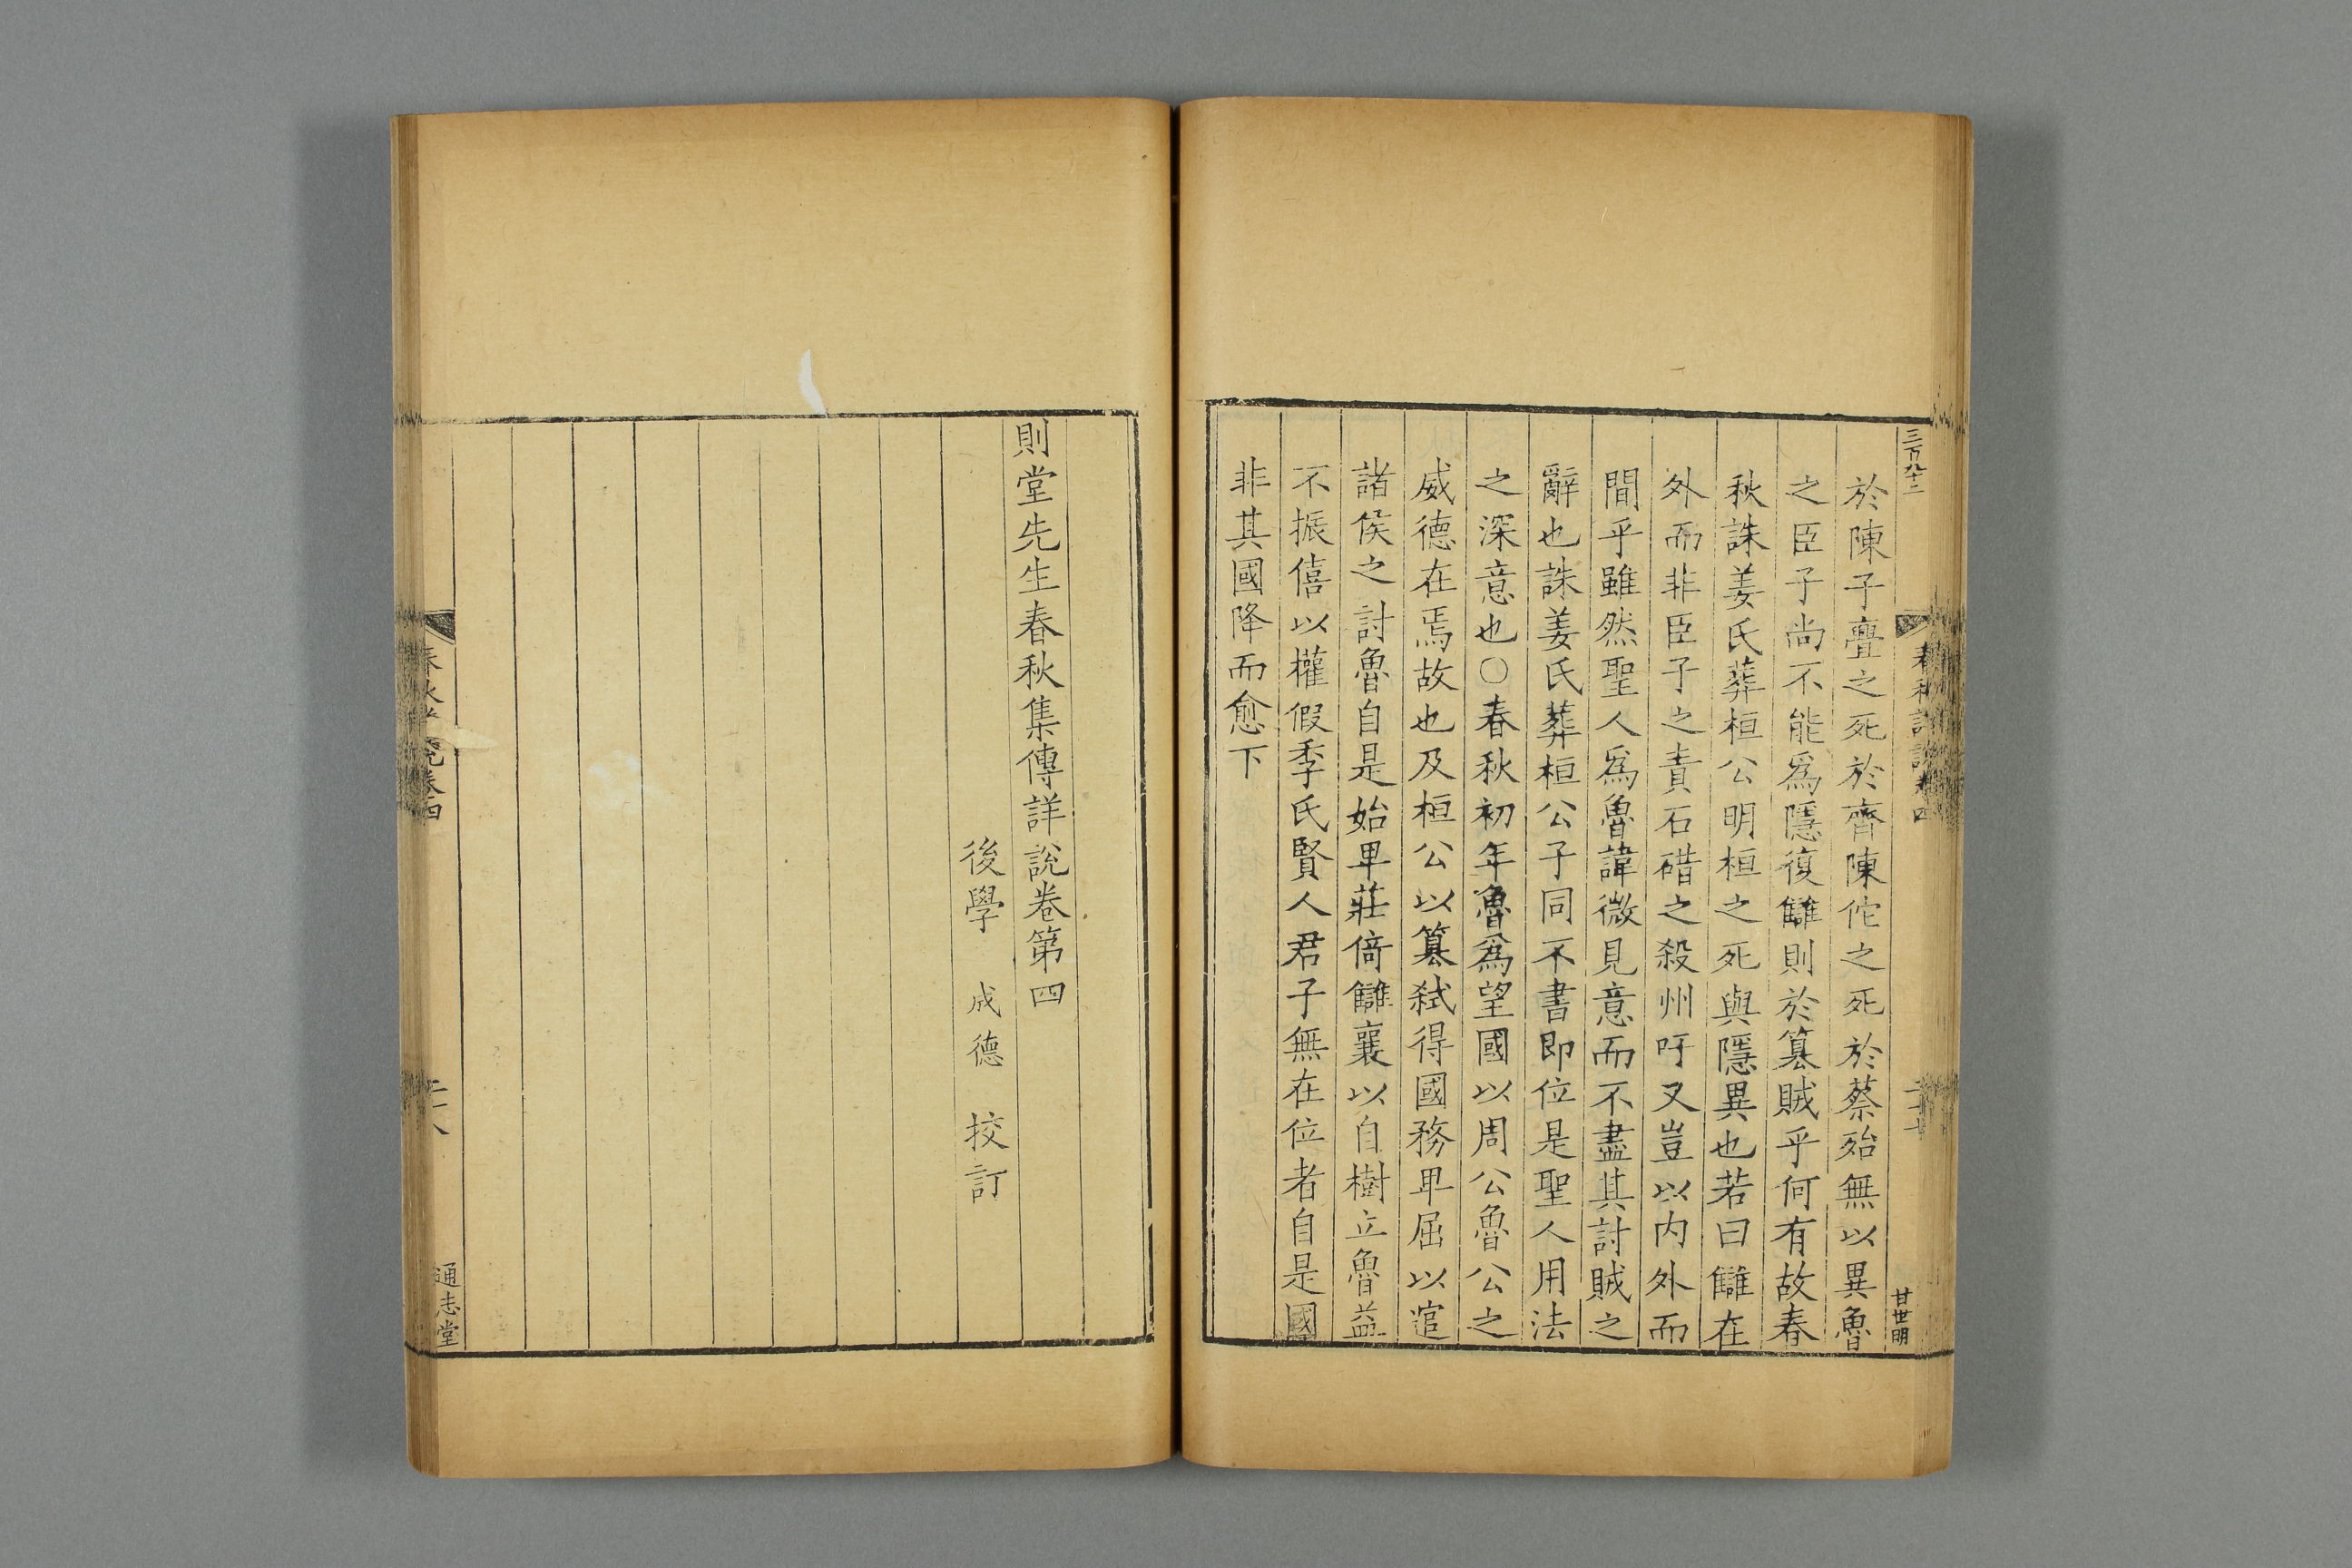 三百八十二
春秋詳說卷四
二十七
甘世明
於陳子亹之死於齊陳佗之死於蔡殆無以異魯
之臣子尚不能爲隱復讎則於簒賊乎何有故春
秋誅姜氏葬桓公明桓之死與隱異也若曰讎在
外而非臣子之責石碏之殺州吁又豈以内外而
間乎雖然聖人爲魯諱微見意而不盡其討賊之
辭也誅姜氏葬桓公子同不書即位是聖人用法
之深意也○春秋初年魯爲望國以周公魯公之
威德在焉故也及桓公以簒弑得國務卑屈以逭
諸侯之討魯自是始卑莊倚讎襄以自樹立魯益
不振僖以權假季氏賢人君子無在位者自是國
非其國降而愈下
則堂先生春秋集傳詳說卷第四
後學 成德 挍訂
春秋詳說卷四
二十八
通志堂